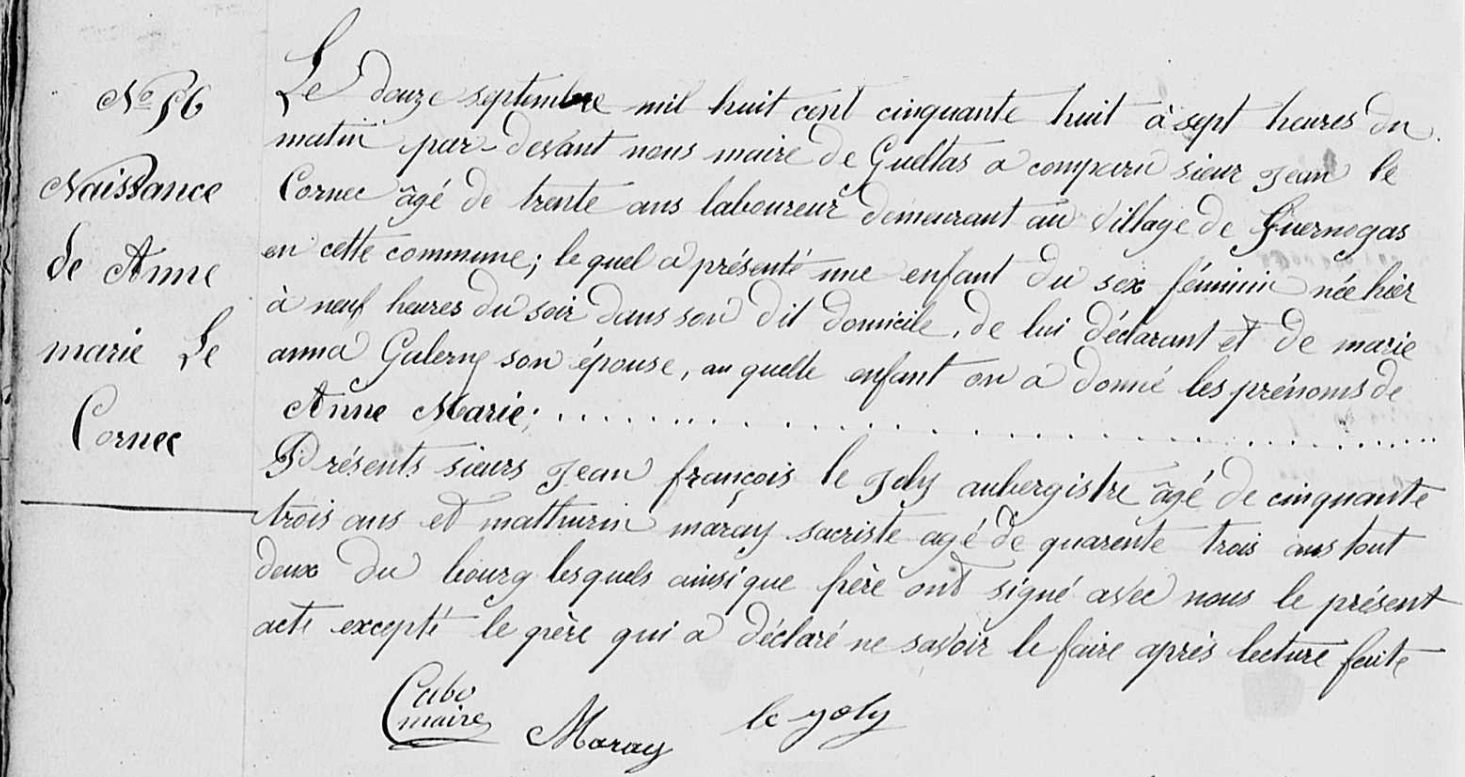 N° 56
Naissance
de Anne
marie Le
Cornec
Le douze septembre mil huit cent cinquante huit à sept heures du
matin par devant nous maire de Gueltas a comparu sieur Jean le
Cornec âgé de trente ans laboureur demeurant au village de Guernogas
en cette commune; le quel a présenté une enfant du sex féminin née hier
à neuf heures du soir dans son dit domicile, de lui déclarant et de marie
anna Galerne son épouse, au quelle enfant on a donné les prénoms de
Anne Marie;
Présents sieurs Jean françois le Joly aubergistre âgé de cinquante
trois ans et mathurin maray sacriste agé de quarente trois ans tout
deux du bourg lesquels ainsi que père ont signé avec nous le présent
acte excepté le père qui a déclaré ne savoir le faire après lecture faite
Cabo
maire
Maray
le joly